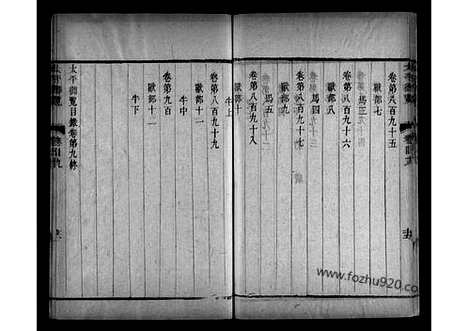 卷第八百九十五
獸部七
馬三
卷第八百九十六
獸部八
馬四
卷第八百九十七
獸部九
馬五
卷第八百九十八
獸部十
牛上
卷第八百九十九
獸部十一
牛中
卷第九百
獸部十二
牛下
太平御覽目錄卷第九終
www.fozhu920.com